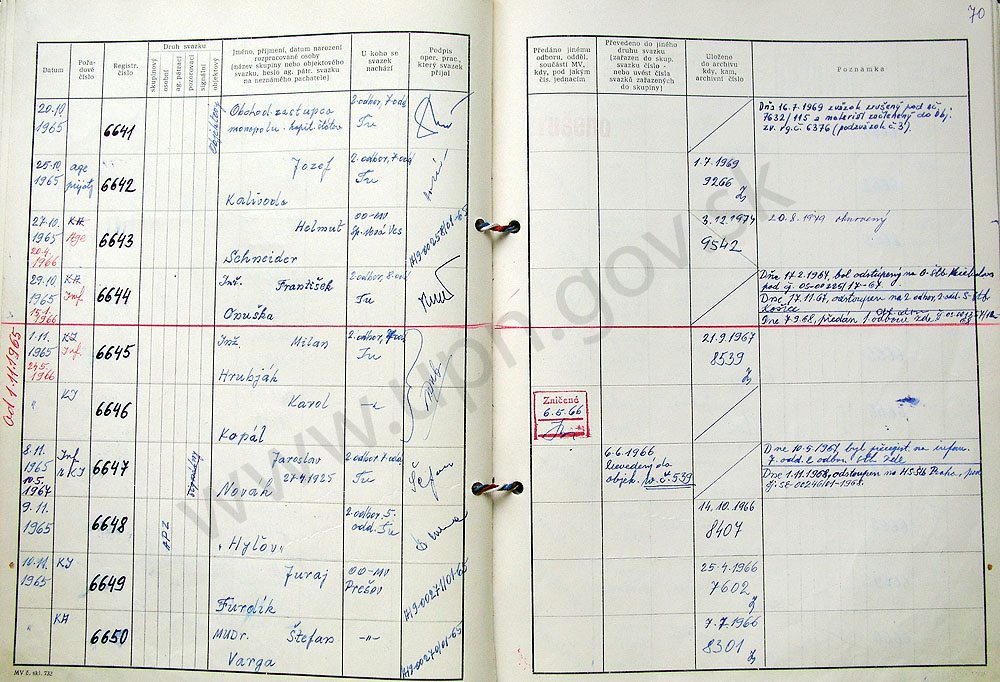 70
Datum
Pořadové číslo
Registr. číslo
Druh svazku
skupinový
osobní
ag. pátrací
pozorovací
signální
objektový
Jméno, příjmení, datum narození
rozpracované osoby
(název skupiny nebo objektového
svazku, heslo ag. pátr. svazku
na neznámého pachatele)
U koho se
svazek
nachází
Podpis
oper. prac.,
který svazek
přijal
Předáno jinému
odboru, odděl.
součásti MV,
kdy, pod jakým
čís. jednacím
Převedeno do jiného
druhu svazku
(zařazen do skup.
svazku číslo -
nebo uvést čísla
svazků zařazených
do skupiny)
Uloženo
do archivu
kdy, kam,
archivní číslo
Poznámka
20.10.
1965
6641
Objektový
Obchod. zástupca
monopolu. kapit. štátov
2 odbor, 7 odd.
Tu
Dňa 16.7.1969 zväzok zrušený pod čč.
7632/115 a materiál začlenený do obj.
zv. rg.č. 6376 (podzväzok č. 3).
25.10.
1965
age
prijatý
6642
Jozef
Kalivoda
2. odbor, 7 odd.
Tu
1.7.1969
9266
27.10.
1965
20.4.
1966
KA
Age
6643
Helmut
Schneider
OO-MV
Sp. Nová Ves
A19-00258/01-65
3.12.1974
9542
20.8.1979 obnovený
29.10
1965
15.1.
1966
KA
Inf.
6644
Inž. František
Onuška
2 odbor, 8 odd.
Tu
Dňe 17.2.1967, bol odstúpený na O-ŠtB Michalovce
pod čj. OS-00225/17-67.
Dne 17.11.67, odstoupen na 2 odbor, 2 odd. S-ŠtB
Košice
Dne 7.9.68, předán 1 odboru zde
od 1.11.1965
1.11.
1965
24.5.
1966
KI
Inf.
6645
Inž. Milan
Hrubják
2. odbor,
Tu
21.9.1967
8539
"
KI
6646
Karol
Kopál
-"-
Zničené
6.5.66
8.11.
1965
10.5.
1967
Inf.
z KI
6647
Jaroslav
27.4.1925
Novák
2 odbor 7 odd
Tu
6.6.1966
Převedený do
objek. sv. č. 539
Dne 10.5.1967, byl přeregist. na infor.
7. odd. 2 odbor. StB zde.
Dne 1.11.1968, odstoupen na HSStB Praha, pod
čj: SE-00246/01-1968.
9.11.
1965
APZ
6648
"Hyľov"
2 odbor 5.
odd. Tu
14.10.1966
8407
10.11.
1965
KI
6649
Juraj
Furdík
OO-MV
Prešov
A19-0027/01-65
25.4.1966
7602
"
KA
6650
MUDr. Štefan
Varga
-"-
A19-00270/01-65
7.7.1966
8301
MV č. skl. 732
www.upn.gov.sk